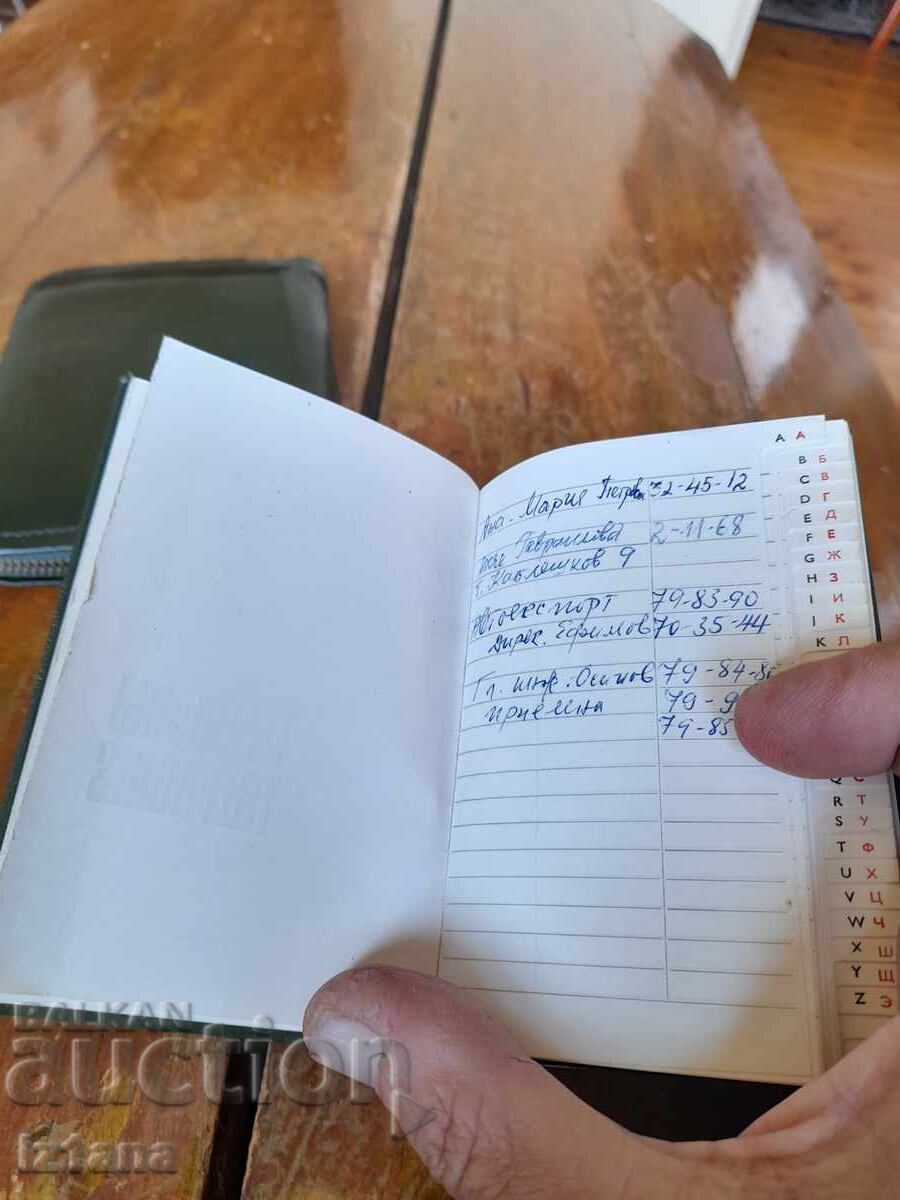 A A
Ана-Мария Петрова 32-45-12
Гаврилова 2-11-68
Каблешков 9
Автоекспорт 79-83-90
Дирек. Ефимов 70-35-44
Гл. инж. Осипов 79-84-8
79-9
79-85
B Б
C В
D Г
E Д
F Е
G Ж
H З
I И
J К
K Л
Q С
R Т
S У
T Ф
U Х
V Ц
W Ч
X Ш
Y Щ
Z Э
BALKAN
auction
Iztana